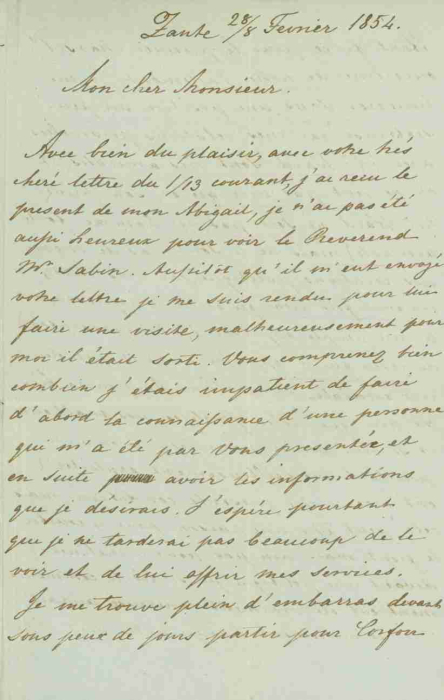 Zante 28/8 Fevrier 1854.
Mon cher Monsieur.
Avec bien du plaisir, avec votre très
cheré lettre du 1/13 courant, j'ai recu le
present de mon Abigail, je n'ai pas été
aussi heureux pour voir le Reverend
Mr. Sabin. Aussitôt qu'il m'eut envoyé
votre lettre je me suis rendu pour lui
faire une visite, malheureusement pour
moi il était sorti. Vous comprenez bien
combien j'étais impatient de faire
d'abord la connaissance d'une personne
qui m'a été par vous presentée, et
en suite avoir les informations
que je désirais. J'espére pourtant
que je ne tarderai pas beaucoup de le
voir et de lui offrir mes services.
Je me trouve plein d'embarras devant
sous peux de jours partir pour Corfou